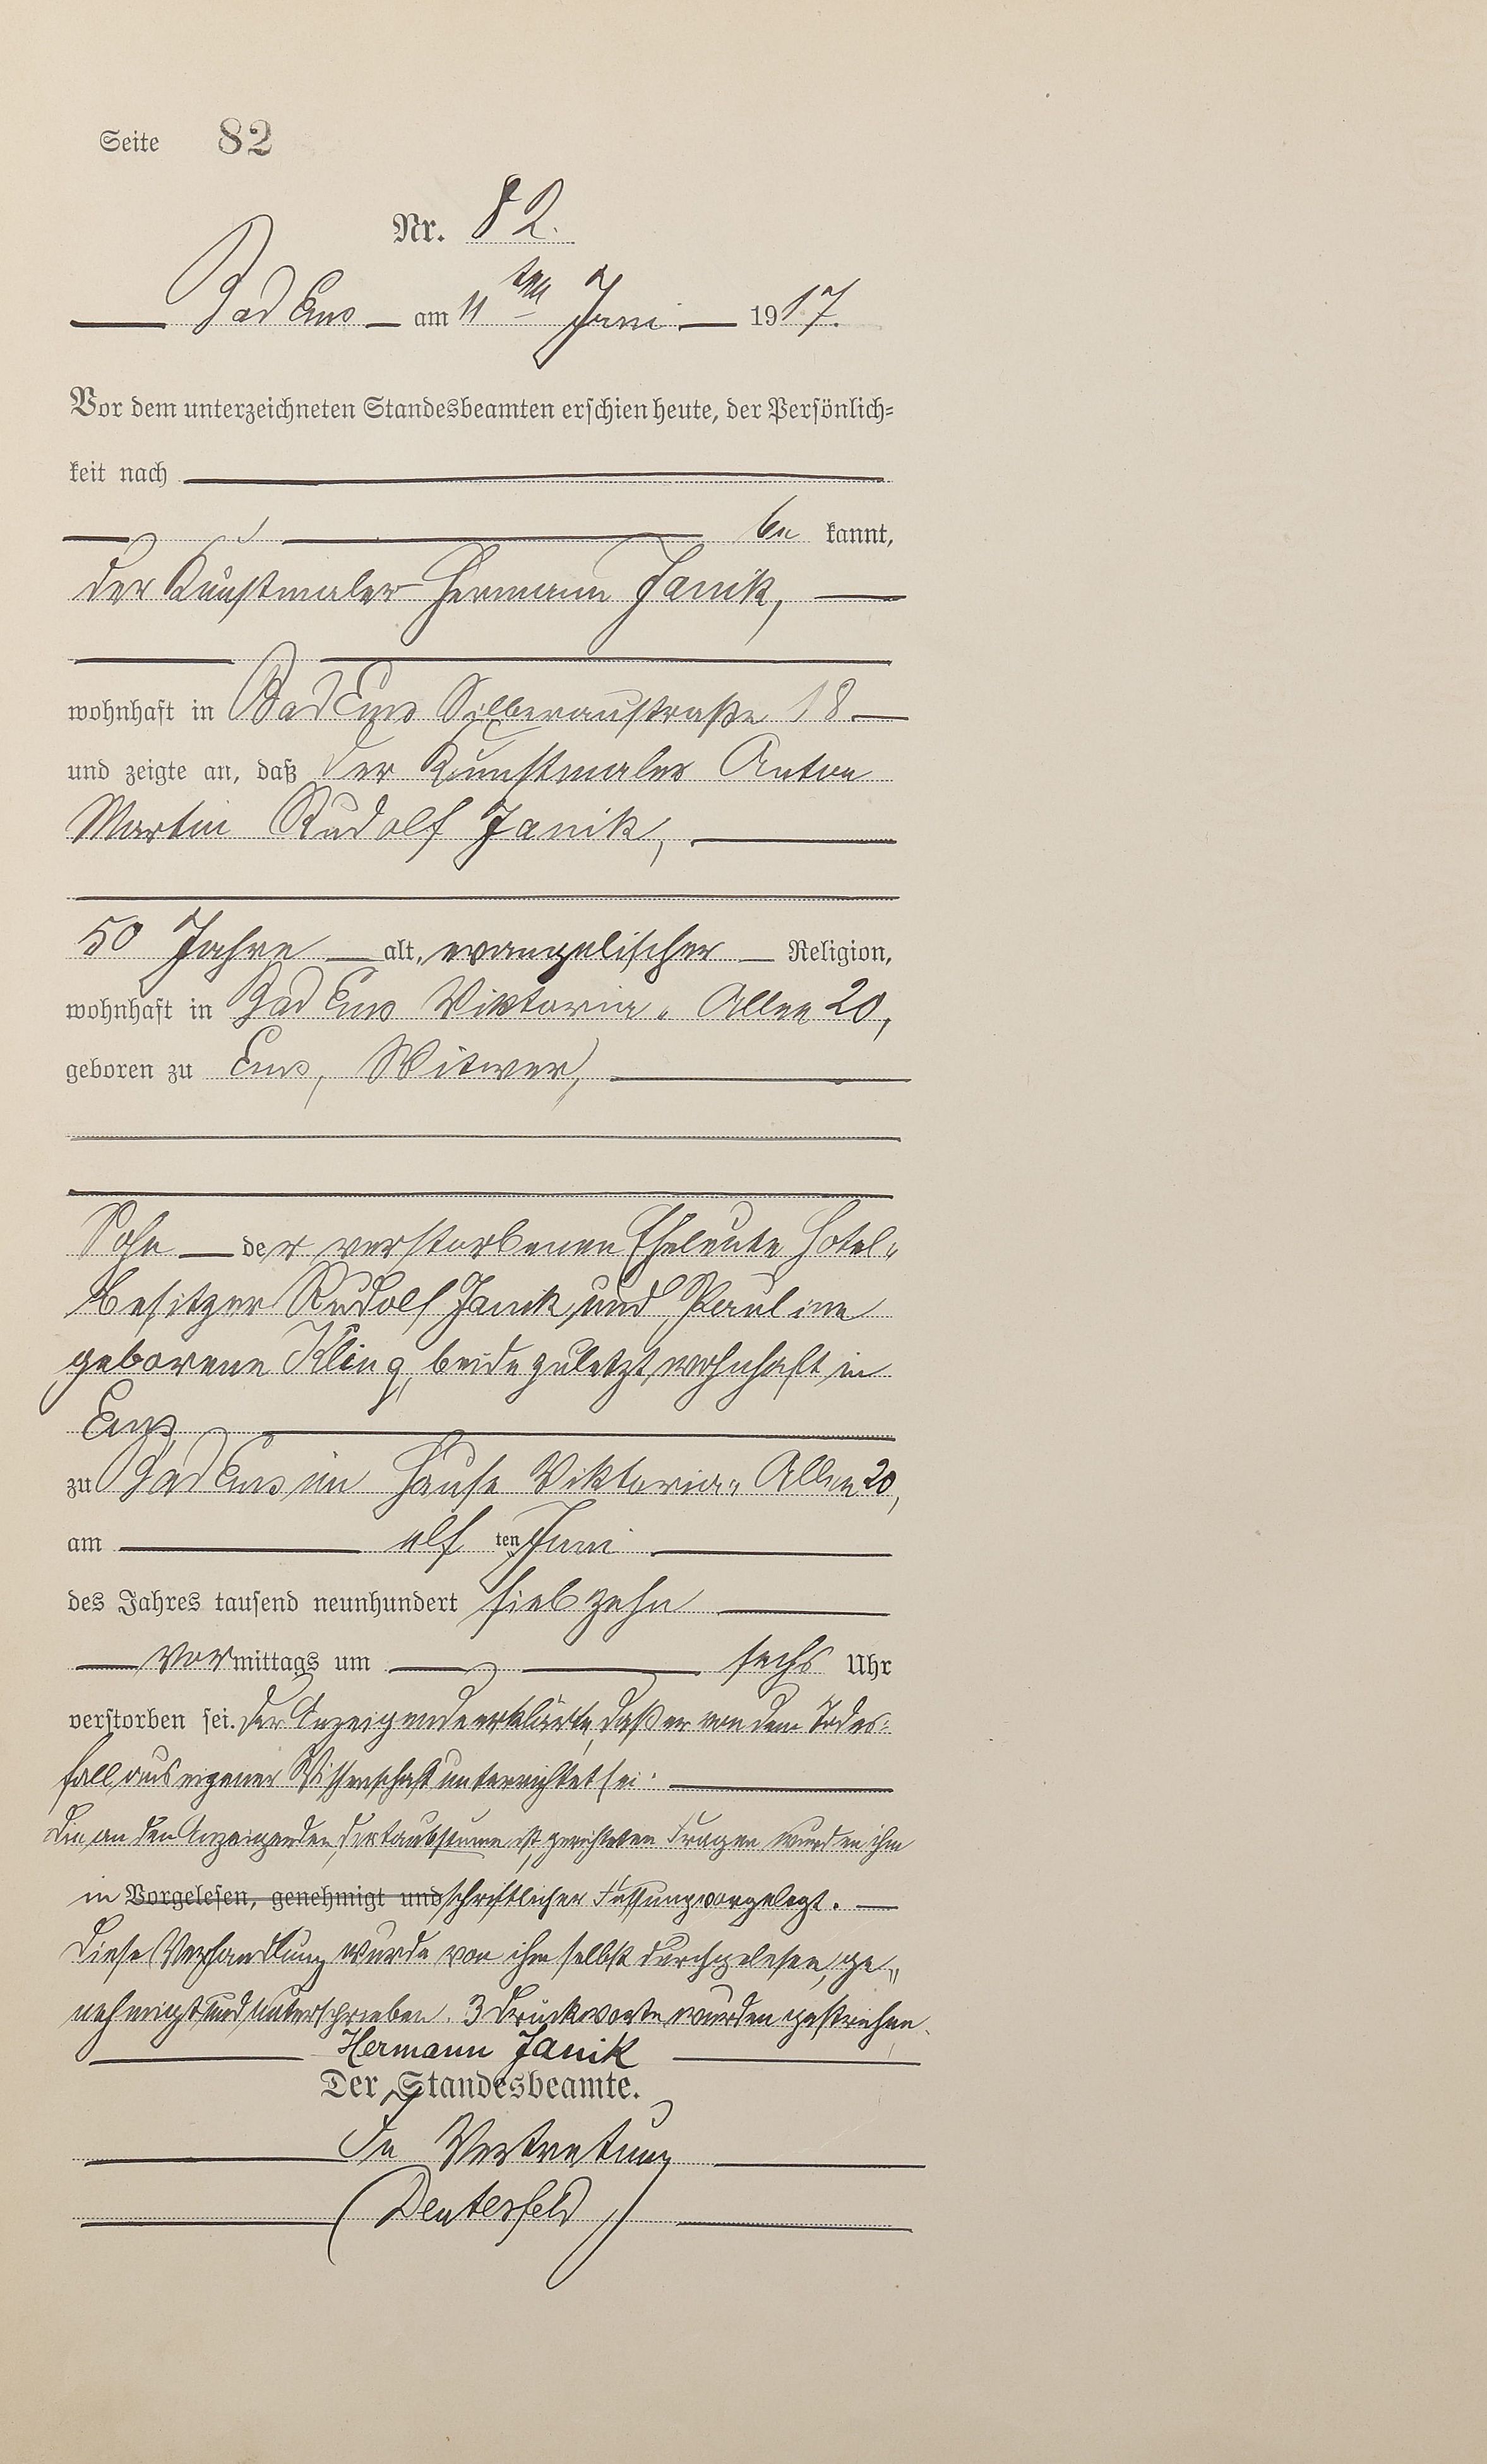 Seite 82
Nr. 82.
Bad Ems am 11ten Juni 1917.
Vor dem unterzeichneten Standesbeamten erschien heute, der Persönlich-
keit nach
be kannt,
der Kunstmaler Hermann Janik,
wohnhaft in Bad Ems Silberaustraße 18
und zeigte an, daß der Kunstmaler Anton
Martin Rudolf Janik,
50 Jahre alt, evangelischer Religion,
wohnhaft in Bad Ems Viktoria-Allee 20,
geboren zu Ems, Witwer,
Sohn der verstorbenen Eheleute Hotel-
besitzer Rudolf Janik und Pauline
geborene Kling, beide zuletzt wohnhaft in
Ems,
zu Bad Ems im Hause Viktoria-Allee 20,
am elf ten Juni
des Jahres tausend neunhundert siebzehn
vormittags um sechs Uhr
verstorben sei. Der Anzeigende erklärte, daß er von dem Todes-
fall aus eigener Wissenschaft unterrichtet sei.
Die an den Anzeigenden, der taubstumm ist, gerichteten Fragen wurden ihm
in Vorgelesen, genehmigt und schriftlicher Fassung vorgelegt.
Diese Verhandlung wurde von ihm selbst durchgelesen, ge-
nehmigt und unterschrieben. 3 Druckworte wurden gestrichen.
Hermann Janik
Der Standesbeamte.
In Vertretung
(Deutesfeld)